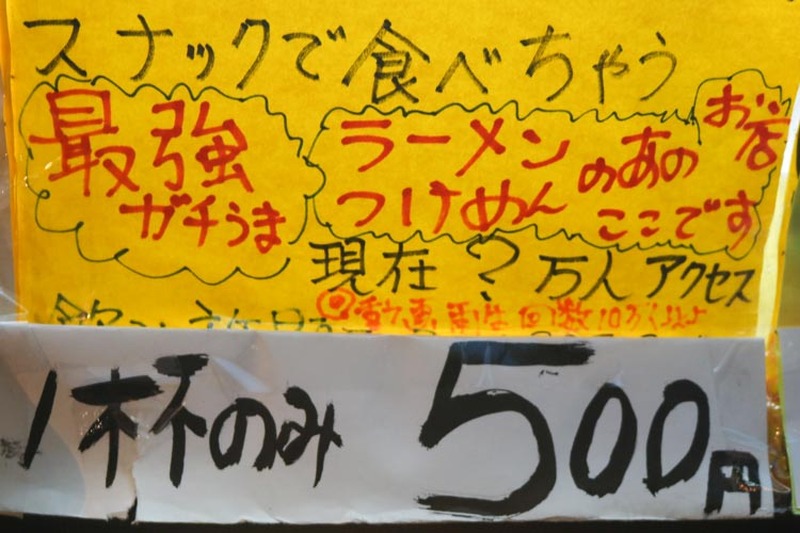 スナックで食べちゃう
最強
ガチうま
ラーメン
つけめん
のあの
お店
ここです
現在?万人アクセス
1杯のみ 500円